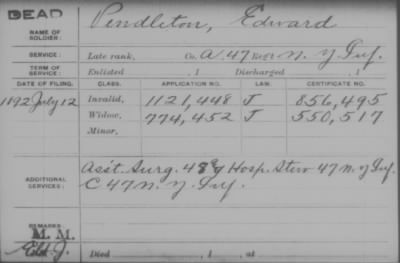 DEAD
NAME OF SOLDIER: Pendleton, Edward
SERVICE: Late rank, Co. A, 47 Reg't N. Y. Inf.
TERM OF SERVICE: Enlisted , 1 Discharged , 1
DATE OF FILING. CLASS. APPLICATION NO. LAW. CERTIFICATE NO.
1892 July 12 Invalid, 1121,448 J 856,495
Widow, 774,452 J 550,517
Minor,
ADDITIONAL SERVICES: Asst. Surg. 48 Hosp. Stew 47 N. Y. Inf.
C 47 N. Y. Inf.
REMARKS:
M. M.
Died , 1 , at